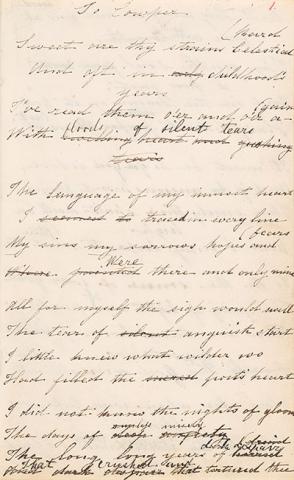 To Cowper
1
Sweet are thy strains Celestial
(Bard
And oft in only childhood's
years
I've read them o'er and o'er a-
(gain
With floods of silent tears
heart and gushing
tears
The language of my inmost heart
I seemed to traced in every line
My sins my sorrows hopes and
fears
Were there and only mine
All for myself the sigh would swell
The tear of silent anguish start
I little knew what wilder wo
Had filled the poet's heart
I did not know the nights of gloom
The days of deep misery
The long long years of dark despair
That crushed and tortured thee